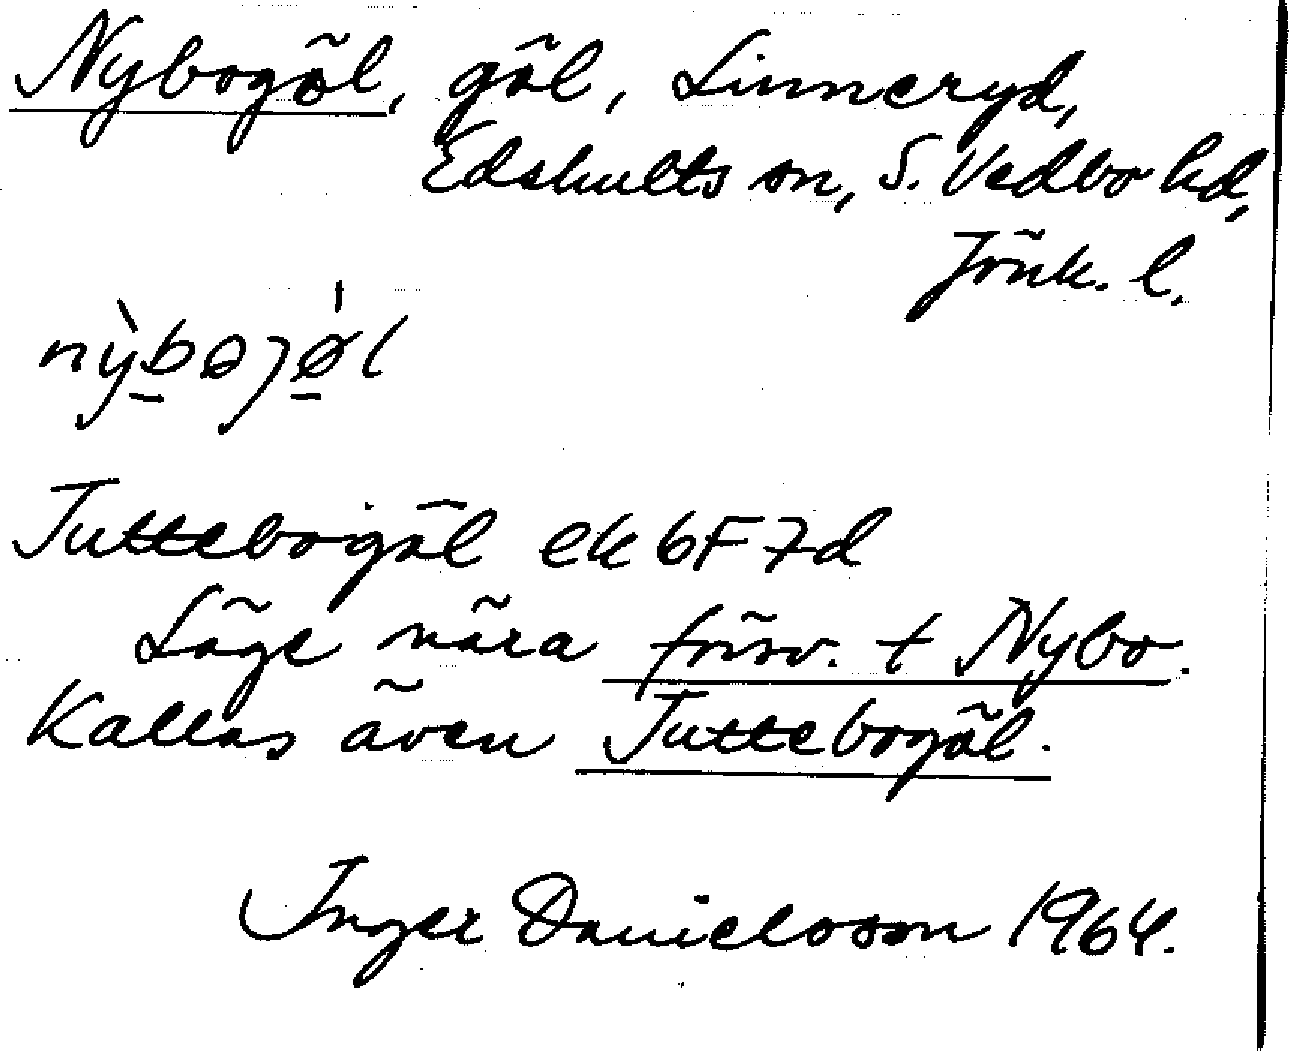 Nybogöl, göl, Linneryd,
Edshults sn, S. Vedbo hd,
Jönk. l.
nỳbəjø̀l
Juttebogöl ek 6F 7d
Läge nära försv. t Nybo.
Kallas även Juttebogöl.
Inger Danielsson 1964.